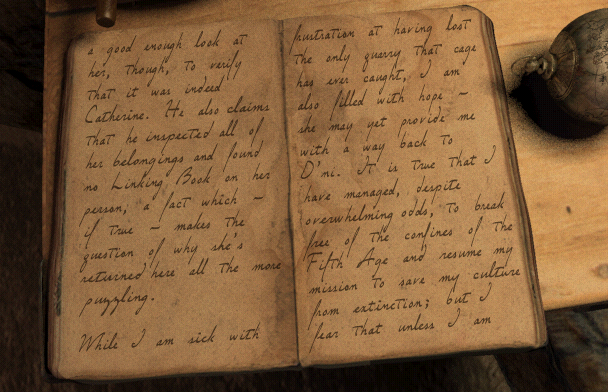 a good enough look at
her, though, to verify
that it was indeed
Catherine. He also claims
that he inspected all of
her belongings and found
no Linking Book on her
person, a fact which –
if true – makes the
question of why she's
returned here all the more
puzzling.
While I am sick with
frustration at having lost
the only quarry that cage
has ever caught, I am
also filled with hope –
she may yet provide me
with a way back to
D'ni. It is true that I
have managed, despite
overwhelming odds, to break
free of the confines of the
Fifth Age and resume my
mission to save my culture
from extinction; but I
fear that unless I am